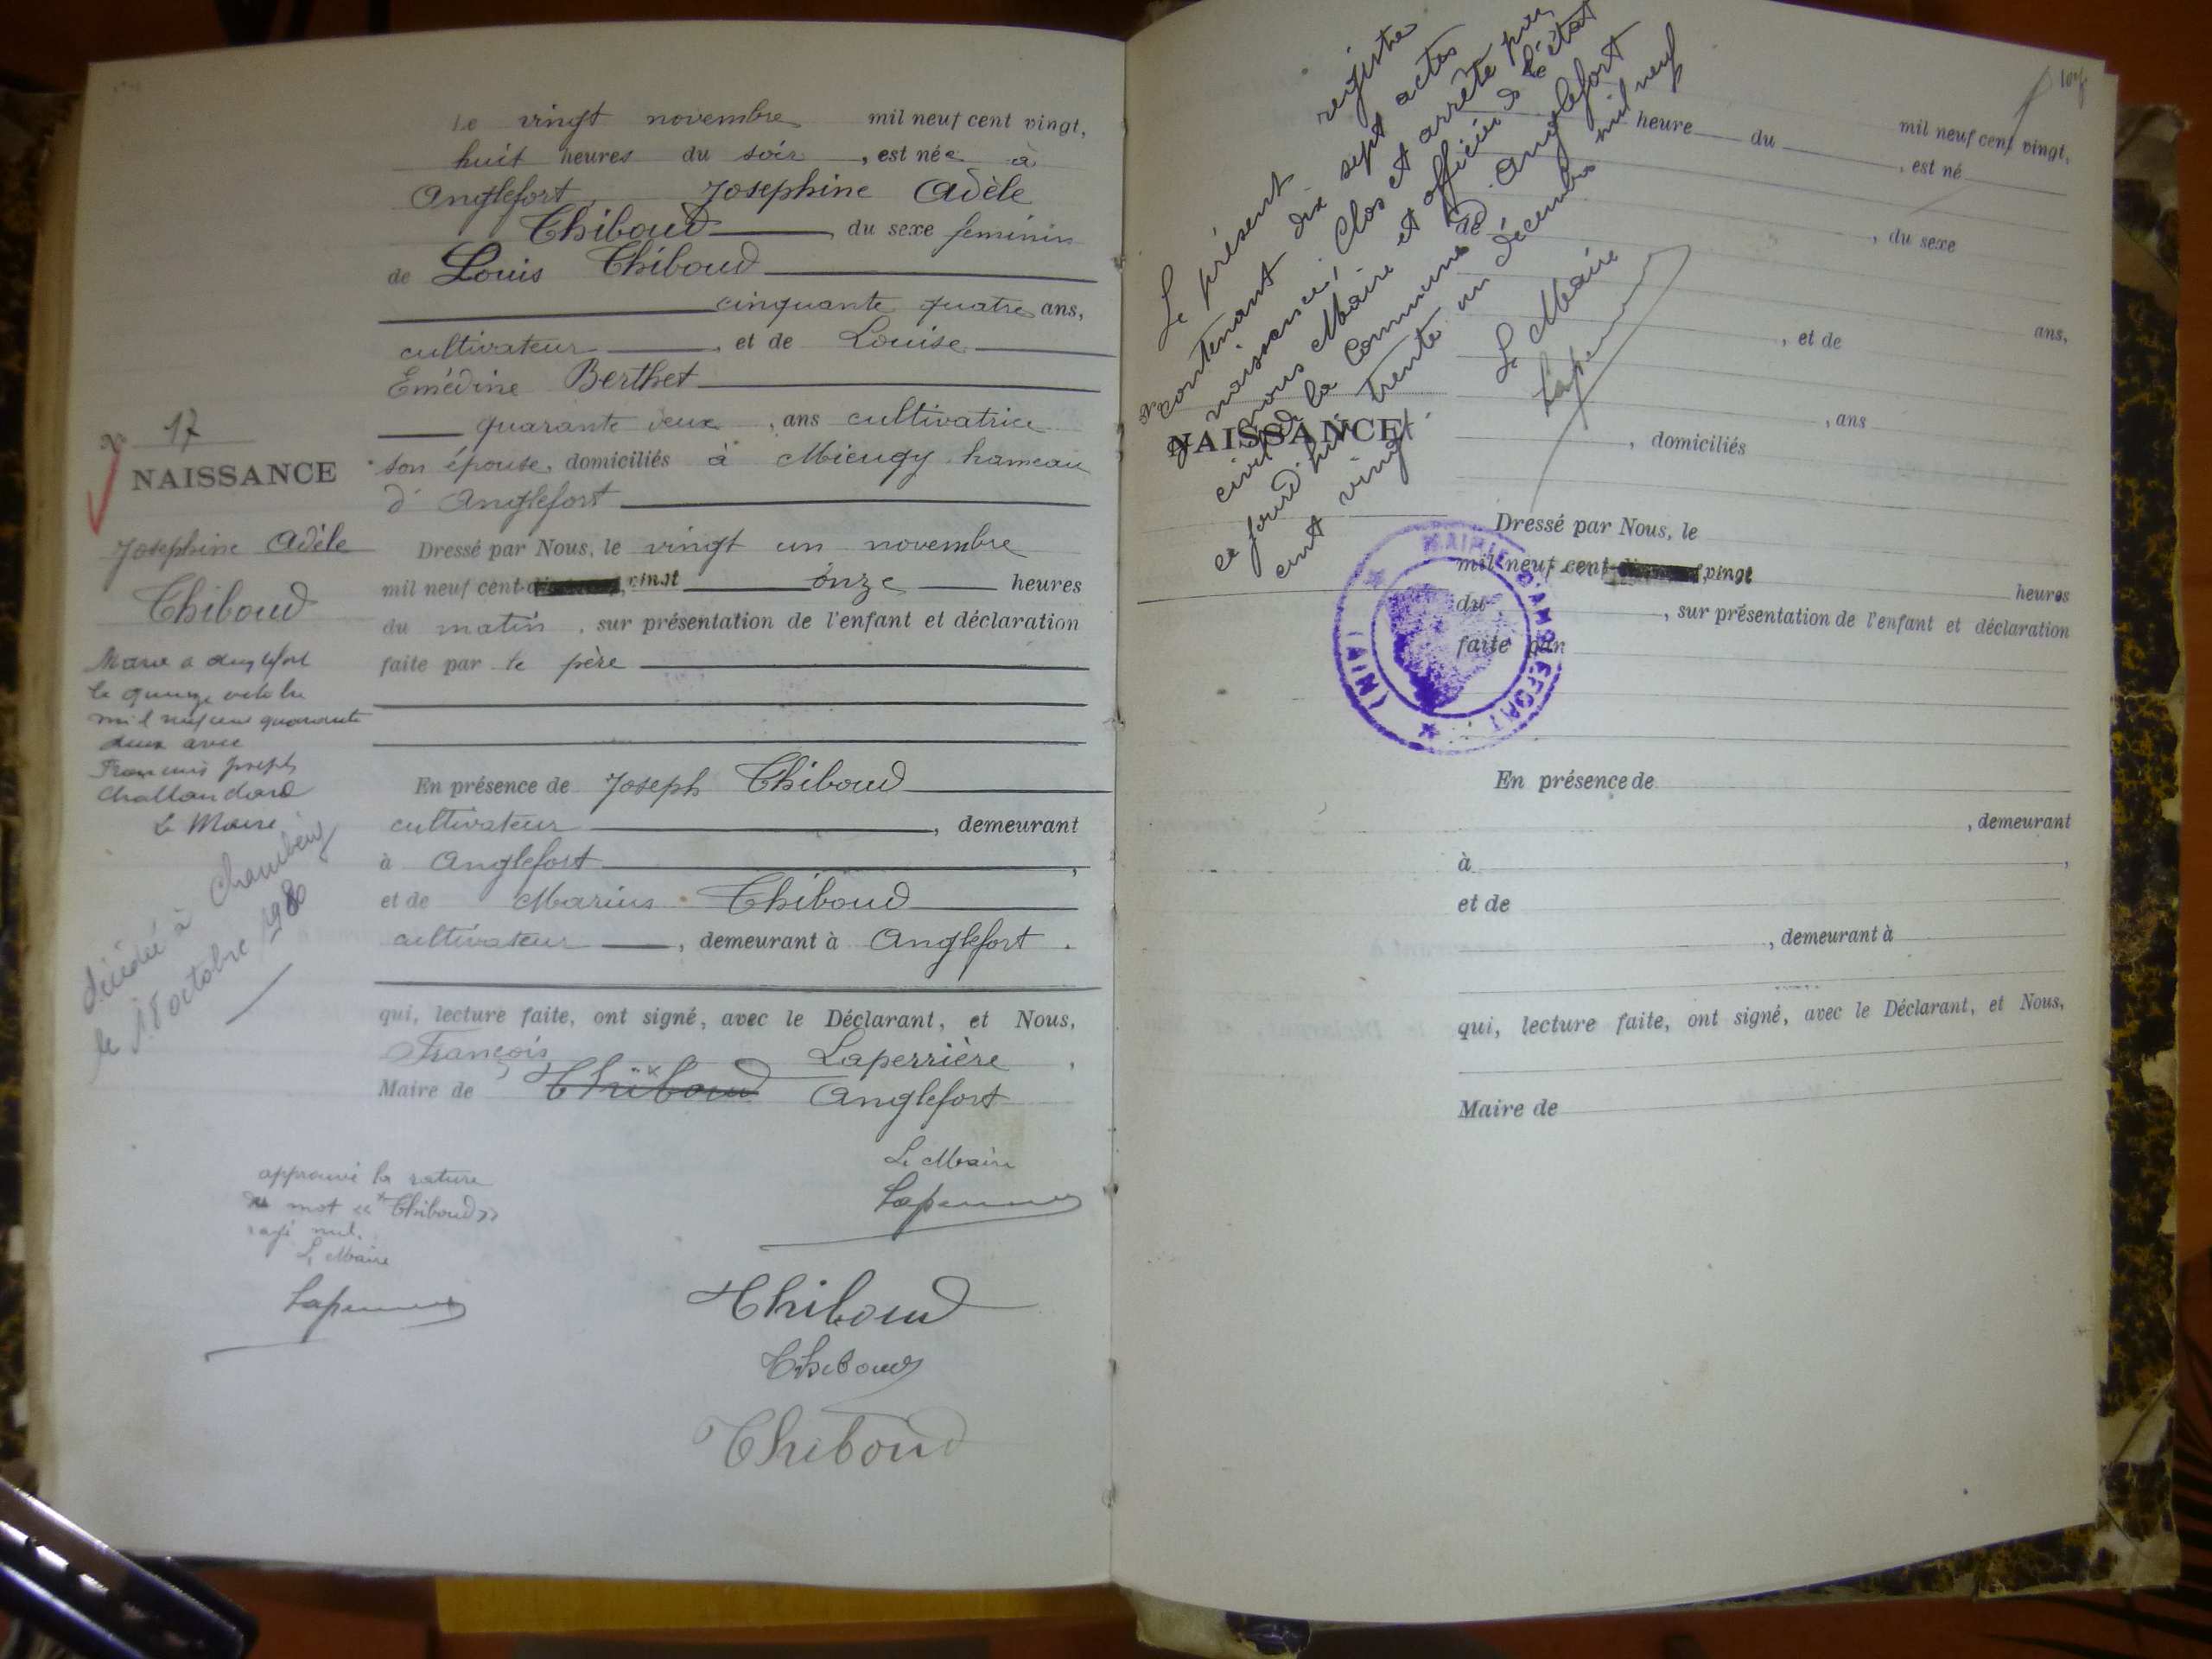 Le vingt novembre mil neuf cent vingt,
huit heures du soir, est née à
Anglefort, Josephine Adèle
Thiboud, du sexe feminin
de Louis Thiboud
cinquante quatre ans,
cultivateur, et de Louise
Emédine Berthet
quarante deux, ans cultivatrice
son épouse, domiciliés à Mieugy hameau
d'Anglefort
N° 17
NAISSANCE
Josephine Adèle
Thiboud
Marié a Anglefort
le quinze octobre
mil neuf cent quarante
deux avec
Francois Joseph
Challandard
Le Maire
décédée à Chambéry
le 18 octobre 1980
Dressé par Nous, le vingt un novembre
mil neuf cent vingt onze heures
du matin, sur présentation de l'enfant et déclaration
faite par le père
En présence de Joseph Thiboud
cultivateur, demeurant
à Anglefort,
et de Marius Thiboud
cultivateur, demeurant à Anglefort.
qui, lecture faite, ont signé, avec le Déclarant, et Nous,
François Laperrière,
Maire de Thiboud Anglefort
Le Maire
Laperrière
approuvé la rature
du mot « Thiboud »
rayé nul.
Le Maire
Laperrière
Thiboud
Thiboud
Thiboud
Le présent registre
contenant dix sept actes
de naissance, Clos et arrêté par
nous Maire et officier de l'état
civil de la Commune d'Anglefort
ce jourd'hui trente un décembre mil neuf
cent vingt.
Le Maire
Laperrière
N°
NAISSANCE
heure du mil neuf cent vingt,
, est né
, du sexe
de
ans,
, et de
, ans
, domiciliés
Dressé par Nous, le
mil neuf cent vingt heures
du, sur présentation de l'enfant et déclaration
faite par
MAIRIE D'ANGLEFORT
(AIN)
En présence de
, demeurant
à,
et de
, demeurant à
qui, lecture faite, ont signé, avec le Déclarant, et Nous,
Maire de